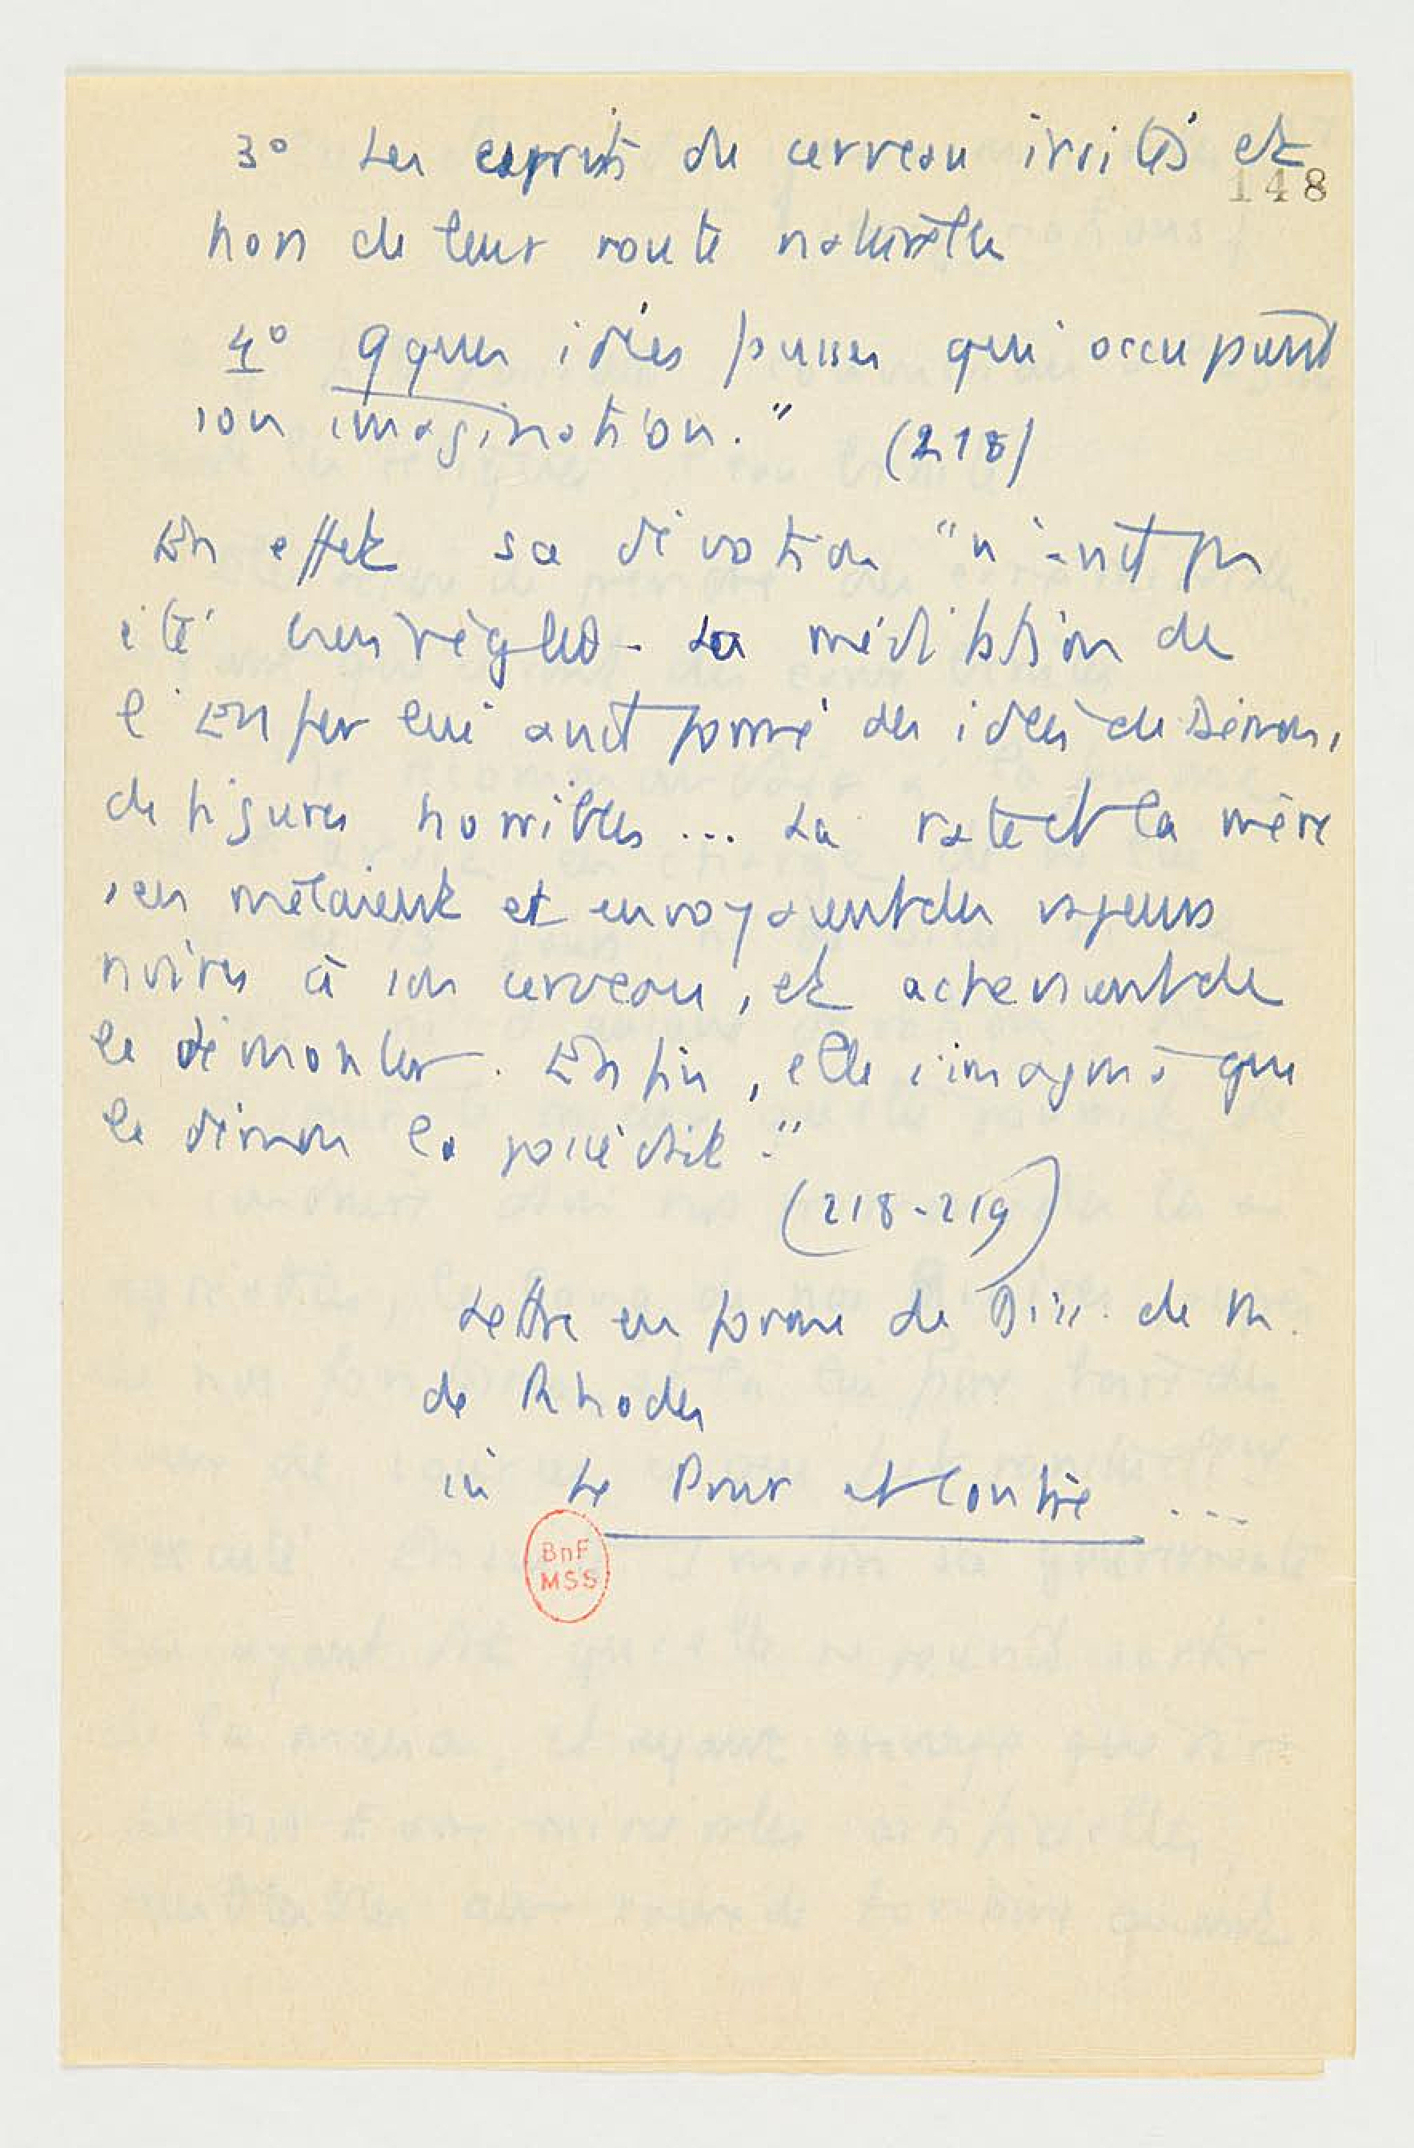 3° Les esprits du cerveau irrités et
148
hors de leur route naturelle
4° Qques idées fausses qui occupaient
son imagination." (218)
En effet sa dévotion "n'avait pas
été bien réglée. La méditation de
l'Enfer lui avait formé des idées de Démons,
de figures horribles ... La rate et la mère
s'en mêlaient et envoyaient des vapeurs
noires à son cerveau, et achevaient de
le démonter. Enfin, elle s'imagina que
le démon la possédait."
(218-219)
Lettre en forme de Diss. de M.
de Rhodes
in Le Pour et Contre ...
BnF
MSS